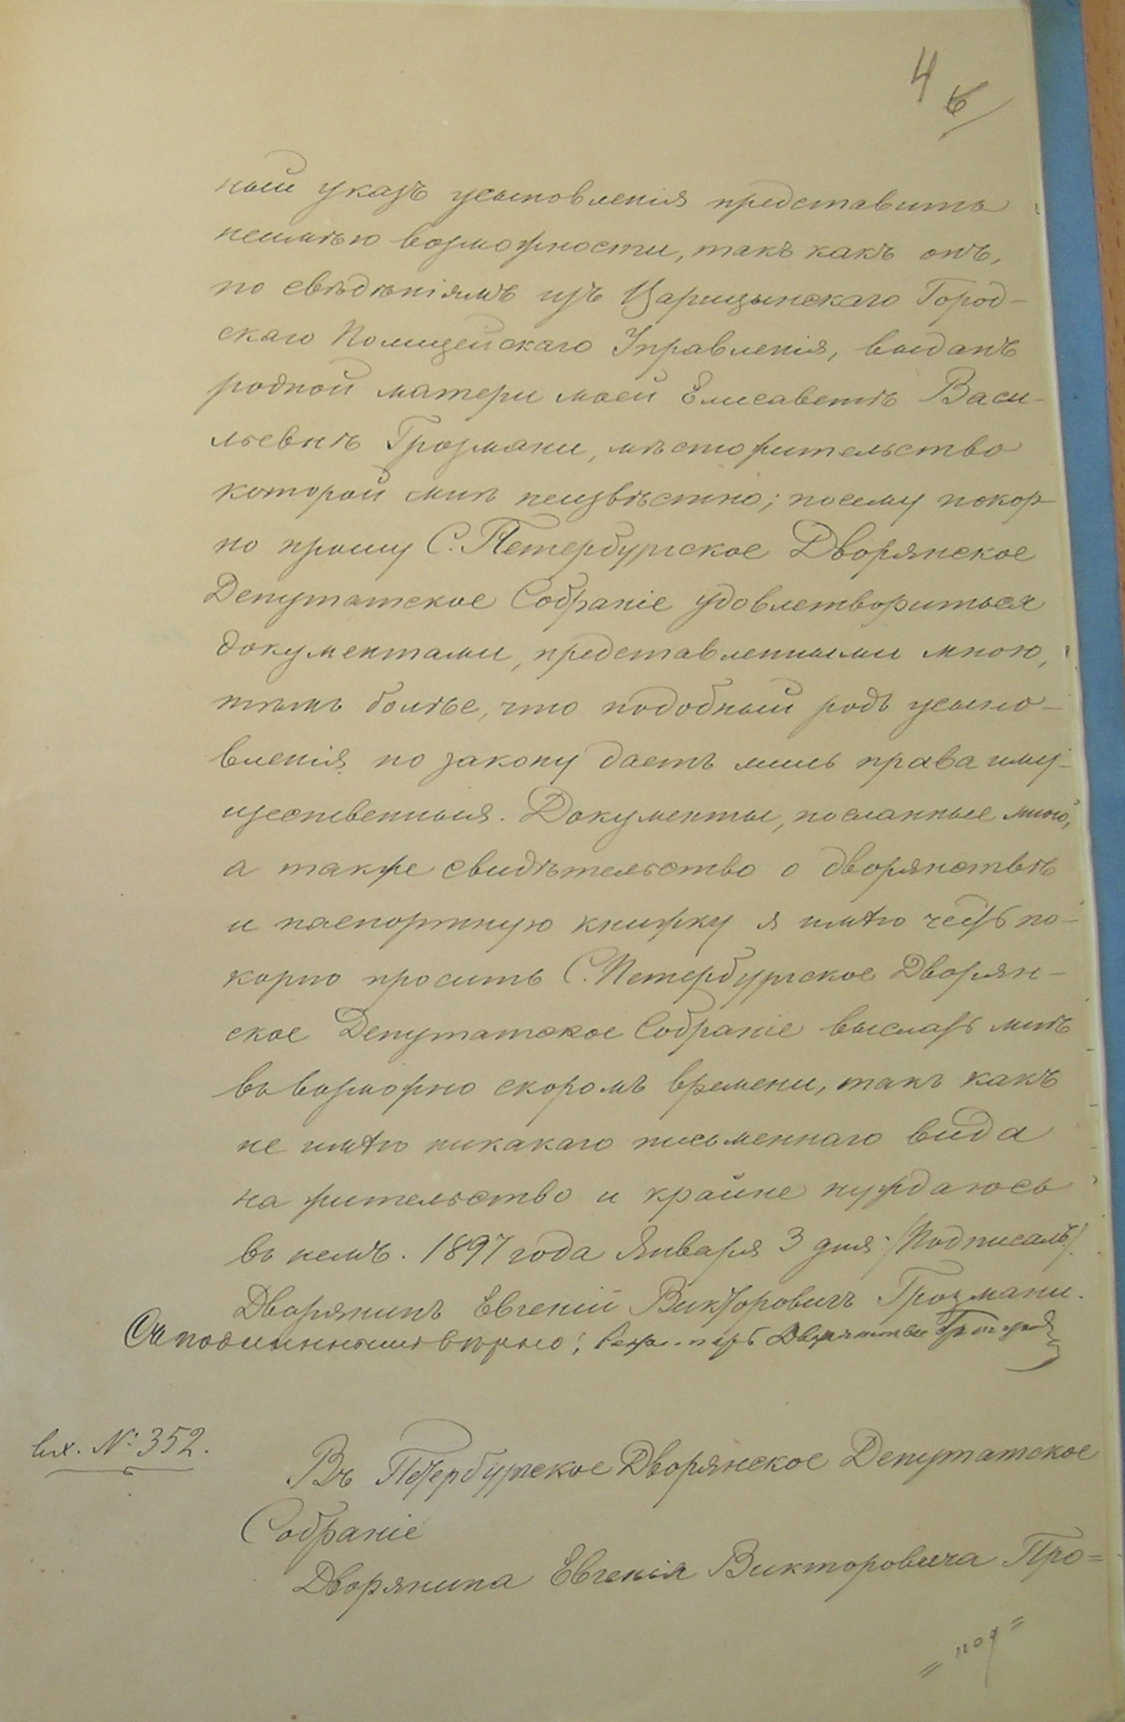 4
ный указъ усыновленія представить
неимѣю возможности, такъ какъ онъ,
по свѣдѣніямъ изъ Царицынскаго Город-
скаго Полицейскаго Управленія, выданъ
родной матери моей Елисаветѣ Васи-
льевнѣ Грозмани, мѣстожительство
которой мнѣ неизвѣстно; посему покор-
но прошу С. Петербургское Дворянское
Депутатское Собраніе удовлетвориться
документами, представленными мною,
тѣмъ болѣе, что подобный родъ усыно-
вленія по закону даетъ лишь права иму-
щественныя. Документы, посланные мною,
а также свидѣтельство о дворянствѣ
и паспортную книжку я имѣю честь по-
корно просить С. Петербургское Дворян-
ское Депутатское Собраніе выслать мнѣ
въ возможно скоромъ времени, такъ какъ
не имѣю никакаго письменнаго вида
на жительство и крайне нуждаюсь
въ немъ. 1897 года Января 3 дня. /Подписалъ/
Дворянинъ Евгеній Викторовичъ Грозмани.
Съ подлиннымъ вѣрно: Дворянства
вх. № 352.
Въ Петербургское Дворянское Депутатское
Собраніе
Дворянина Евгенія Викторовича Гро=